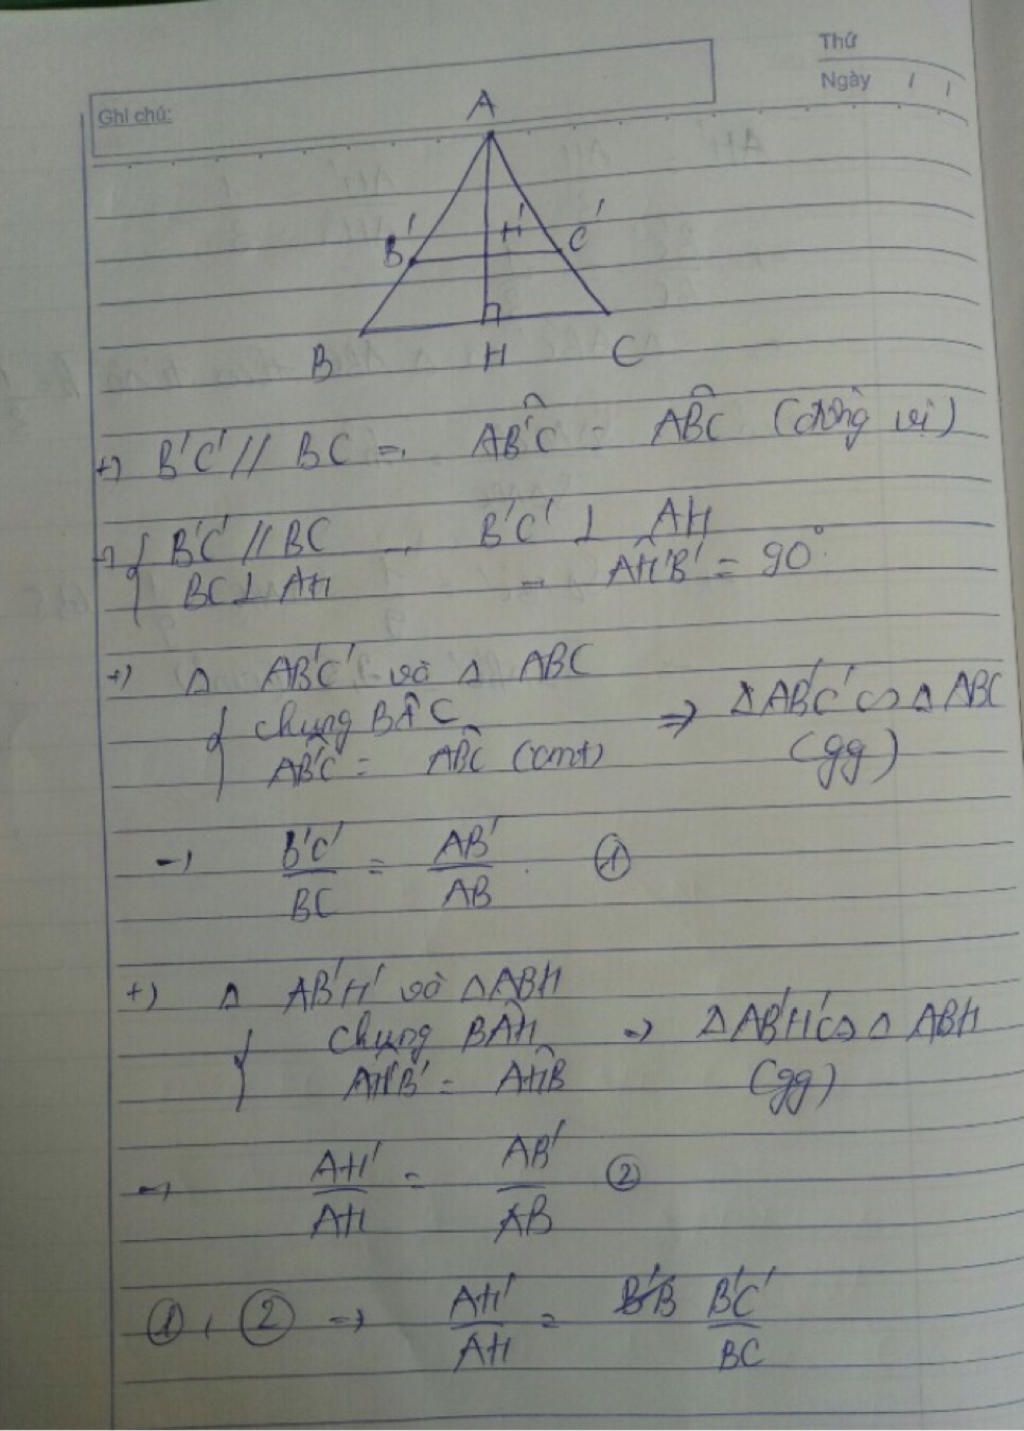 Thứ
Ngày / /
Ghi chú:
A
B' H' C'
B H C
+) B'C' // BC => AB'C = ABC (đồng vị)
+) { B'C' // BC → B'C' ⊥ AH
BC ⊥ AH → AH'B' = 90°
+) Δ AB'C' và Δ ABC
{ chung BAC => Δ AB'C' ∽ Δ ABC
AB'C' = ABC (cmt) (gg)
→ B'C'/BC = AB'/AB ①
+) Δ AB'H' và Δ ABH
{ chung BAH → Δ AB'H' ∽ Δ ABH
AH'B' = AHB (gg)
→ AH'/AH = AB'/AB ②
①, ② → AH'/AH = B'C'/BC